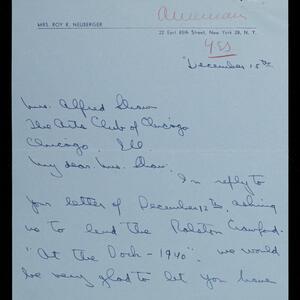 American
MRS. ROY R. NEUBERGER
22 East 85th Street, New York 28, N. Y.
YES
December 15th
Mrs. Alfred Shaw
The Arts Club of Chicago
Chicago, Ill.
My dear Mrs. Shaw,
In reply to
your letter of December 12th, asking
us to lend the Ralston Crawford
"At the Dock - 1940", we would
be very glad to let you have